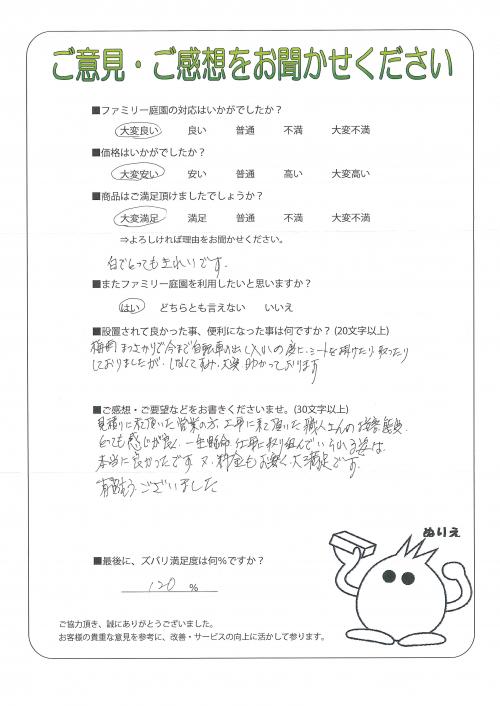 ご意見・ご感想をお聞かせください
■ファミリー庭園の対応はいかがでしたか？
大変良い 良い 普通 不満 大変不満
■価格はいかがでしたか？
大変安い 安い 普通 高い 大変高い
■商品はご満足頂けましたでしょうか？
大変満足 満足 普通 不満 大変不満
⇒よろしければ理由をお聞かせください。
白でとってもきれいです。
■またファミリー庭園を利用したいと思いますか？
はい どちらとも言えない いいえ
■設置されて良かった事、便利になった事は何ですか？(20文字以上)
今まで自転車の出し入れの度に、シートを掛けたり取ったり
しておりましたが、しなくてすみ、大変助かっております
■ご感想・ご要望などをお書きくださいませ。(30文字以上)
見積りに来て頂いた営業の方、工事に来て頂いた職人さんの接客態度
とっても感じが良く、一生懸命仕事に取り組んでいらっしゃる姿は
本当に良かったです 又、料金もお安く、大満足です。
有難うございました
ぬりえ
■最後に、ズバリ満足度は何％ですか？
120 %
ご協力頂き、誠にありがとうございました。
お客様の貴重な意見を参考に、改善・サービスの向上に活かして参ります。